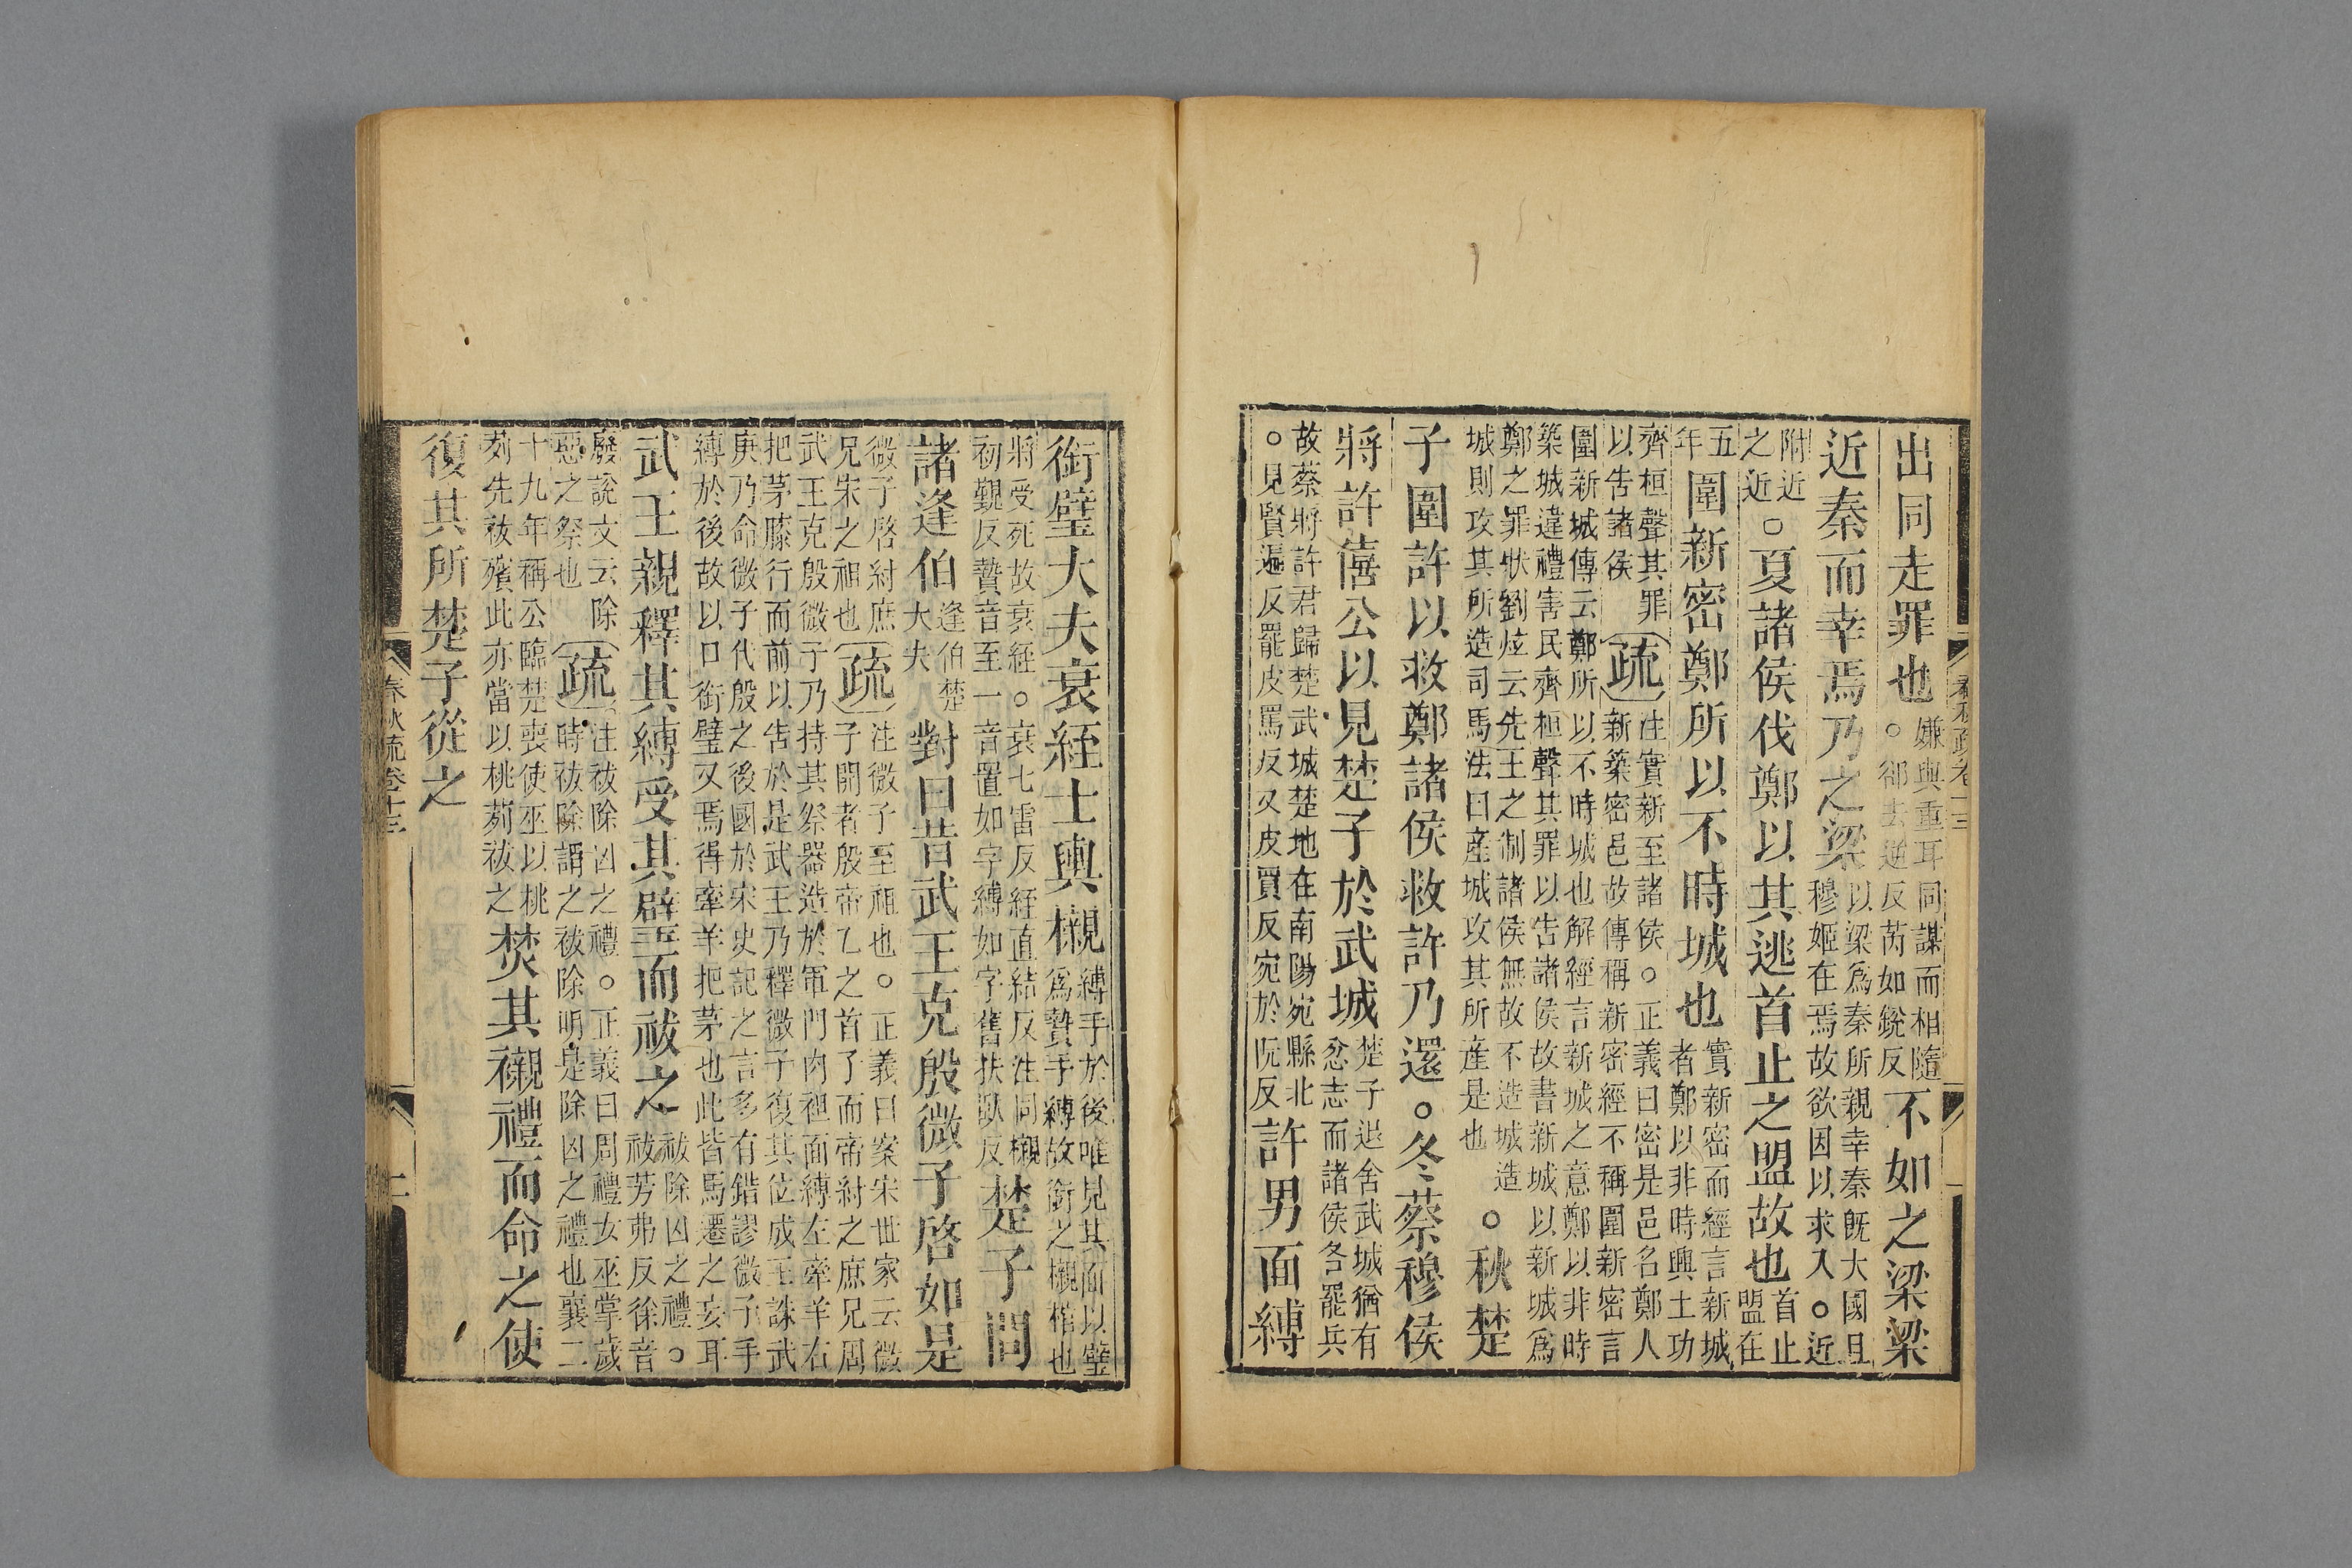 出同走罪也嫌與重耳同謀而相隨。郤去逆反芮如銳反不如之梁梁
近秦而幸焉乃之梁以梁爲秦所親幸秦旣大國且穆姬在焉故欲因以求入。近
附近之近。夏諸侯伐鄭以其逃首止之盟故也首止盟在
五年圍新密鄭所以不時城也實新密而經言新城者鄭以非時興土功
齊桓聲其罪以告諸侯疏注實新至諸侯。正義曰密是邑名鄭人新築密邑故傳稱新密經不稱圍新密言
圍新城傳云鄭所以不時城也解經言新城之意鄭以非時築城違禮害民齊桓聲其罪以告諸侯故書新城以新城爲
鄭之罪狀劉炫云先王之制諸侯無故不造城造城則攻其所造司馬法曰產城攻其所產是也。秋楚
子圍許以救鄭諸侯救許乃還。冬蔡穆侯
將許僖公以見楚子於武城楚子退舍武城猶有忿志而諸侯各罷兵
故蔡將許君歸楚武城楚地在南陽宛縣北。見賢遍反罷皮罵反又皮買反宛於阮反許男面縛
銜璧大夫衰絰士輿櫬縛手於後唯見其面以璧爲贄手縛故銜之櫬棺也
將受死故衰絰。衰七雷反絰直結反注同櫬初覲反贄音至一音置如字縛如字舊扶臥反楚子問
諸逢伯逢伯楚大夫對曰昔武王克殷微子啓如是
微子啓紂庶兄宋之祖也疏注微子至祖也。正義曰案宋世家云微子開者殷帝乙之首子而帝紂之庶兄周
武王克殷微子乃持其祭器造於軍門肉袒面縛左牽羊右把茅膝行而前以告於是武王乃釋微子復其位成王誅武
庚乃命微子代殷之後國於宋史記之言多有錯謬微子手縛於後故以口銜璧又焉得牽羊把茅也此皆馬遷之妄耳
武王親釋其縛受其璧而祓之祓除凶之禮。祓芳弗反徐音
廢說文云除惡之祭也疏注祓除凶之禮。正義曰周禮女巫掌歲時祓除謂之祓除明是除凶之禮也襄二
十九年稱公臨楚喪使巫以桃茢先祓殯此亦當以桃茢祓之焚其櫬禮而命之使
復其所楚子從之
春秋疏卷十三
二